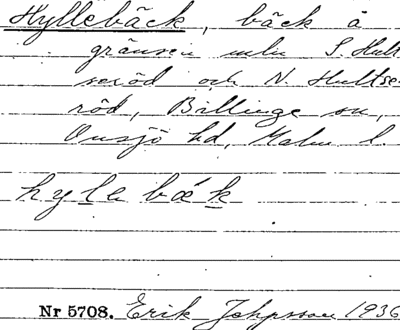 Hyllebäck, bäck å
gränsen mln S. Hult
seröd och N. Hultse
röd, Billinge sn,
Onsjö hd, Malm. l.
hyle bæk
Nr 5708. Erik Jeppsson 1936